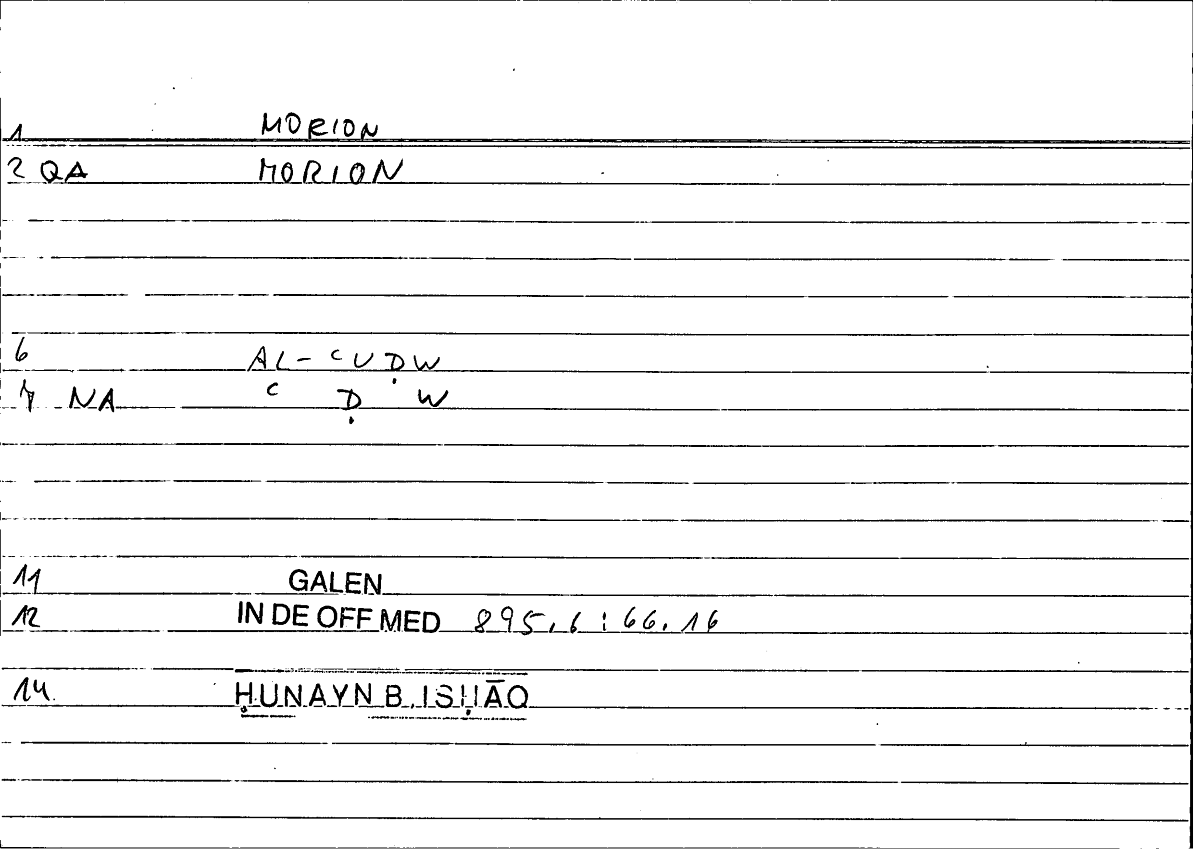 1 MORION
2 QA MORION
6 AL-ᶜUḌW
7 NA ᶜ Ḍ W
11 GALEN
12 IN DE OFF MED 895,6:66.16
14. ḤUNAYN B. ISḤĀQ